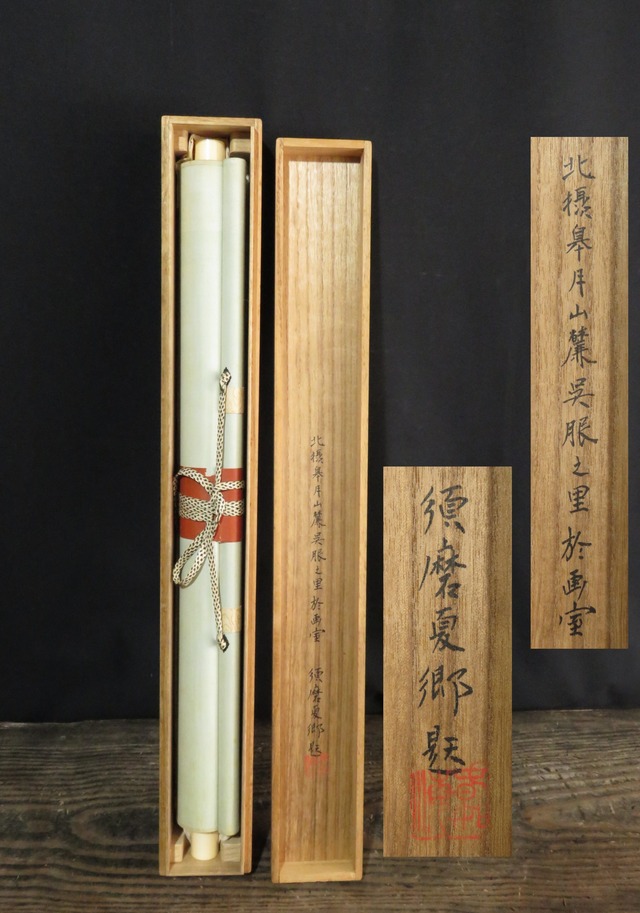 北摂皐月山麓呉服之里於画室
須磨夏郷題
北摂皐月山麓呉服之里於画室
須磨夏郷題